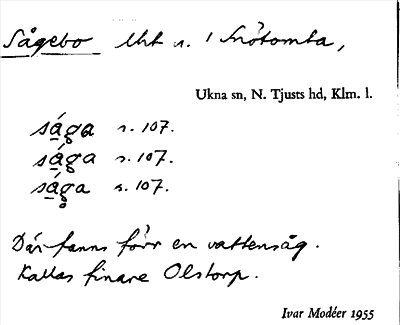 Sågebo lht n. 1 Snötomta,
Ukna sn, N. Tjusts hd, Klm. l.
såga s. 107.
såga s. 107.
såga s. 107.
Där fanns förr en vattensåg.
Kallas finare Olstorp.
Ivar Modéer 1955